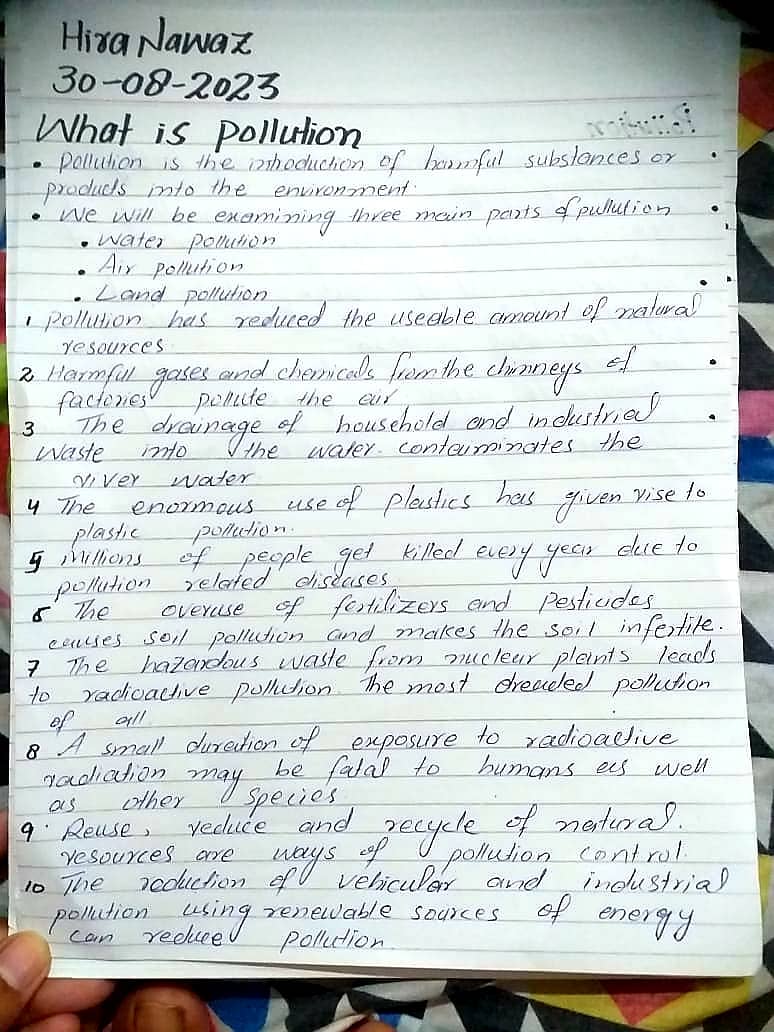 Hira Nawaz
30-08-2023
What is pollution
• Pollution is the introduction of harmful substances or
products into the environment.
• We will be examining three main parts of pullution
• Water pollution
• Air pollution
• Land pollution
1 Pollution has reduced the useable amount of natural
resources
2 Harmful gases and chemicals from the chimneys of
factories pollute the air
3 The drainage of household and industrial
waste into the water. contaminates the
river water
4 The enormous use of plastics has given rise to
plastic pollution.
5 Millions of people get killed every year due to
pollution related diseases
6 The overuse of fertilizers and pesticides
causes soil pollution and makes the soil infertile.
7 The hazardous waste from nuclear plants leads
to radioactive pollution. The most dreaded pollution
of all
8 A small duration of exposure to radioactive
radiation may be fatal to humans as well
as other species
9. Reuse, reduce and recycle of natural.
resources are ways of pollution control.
10 The reduction of vehicular and industrial
pollution using renewable sources of energy
can reduce pollution.